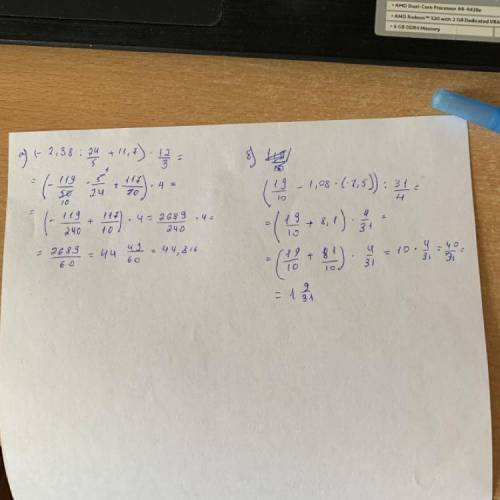 • AMD Dual-Core Processor A6-9420e
• AMD Radeon™ 520 with 2 GB Dedicated VRA
• 4 GB DDR4 Memory
а) (-2,38 : 24/5 + 11,7) · 12/3 =
= (-119/50 · 5/24 + 117/10) · 4 =
10
= (-119/240 + 117/10) · 4 = 2689/240 · 4 =
= 2689/60 = 44 49/60 = 44,816
б)
(19/10 - 1,08 · (-7,5)) : 31/4 =
= (19/10 + 8,1) · 4/31 =
= (19/10 + 81/10) · 4/31 = 10 · 4/31 = 40/31 =
= 1 9/31